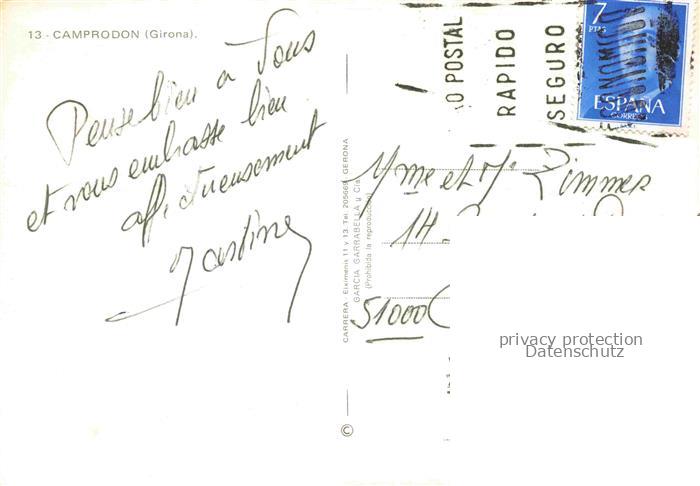 13 - CAMPRODON (Girona).
Pense bien a Vous
et vous embrasse bien
affectueusement
Martine
CARRERA - Eiximenis 11 y 13. Tel. 205669 GERONA
GARCIA GARRABELLA y Cía.
(Prohibida la reproducción)
©
O POSTAL
RAPIDO
SEGURO
7
PTAS
ESPAÑA
CORREOS
Mme et Mr Zimmer
14
51000 C
privacy protection
Datenschutz